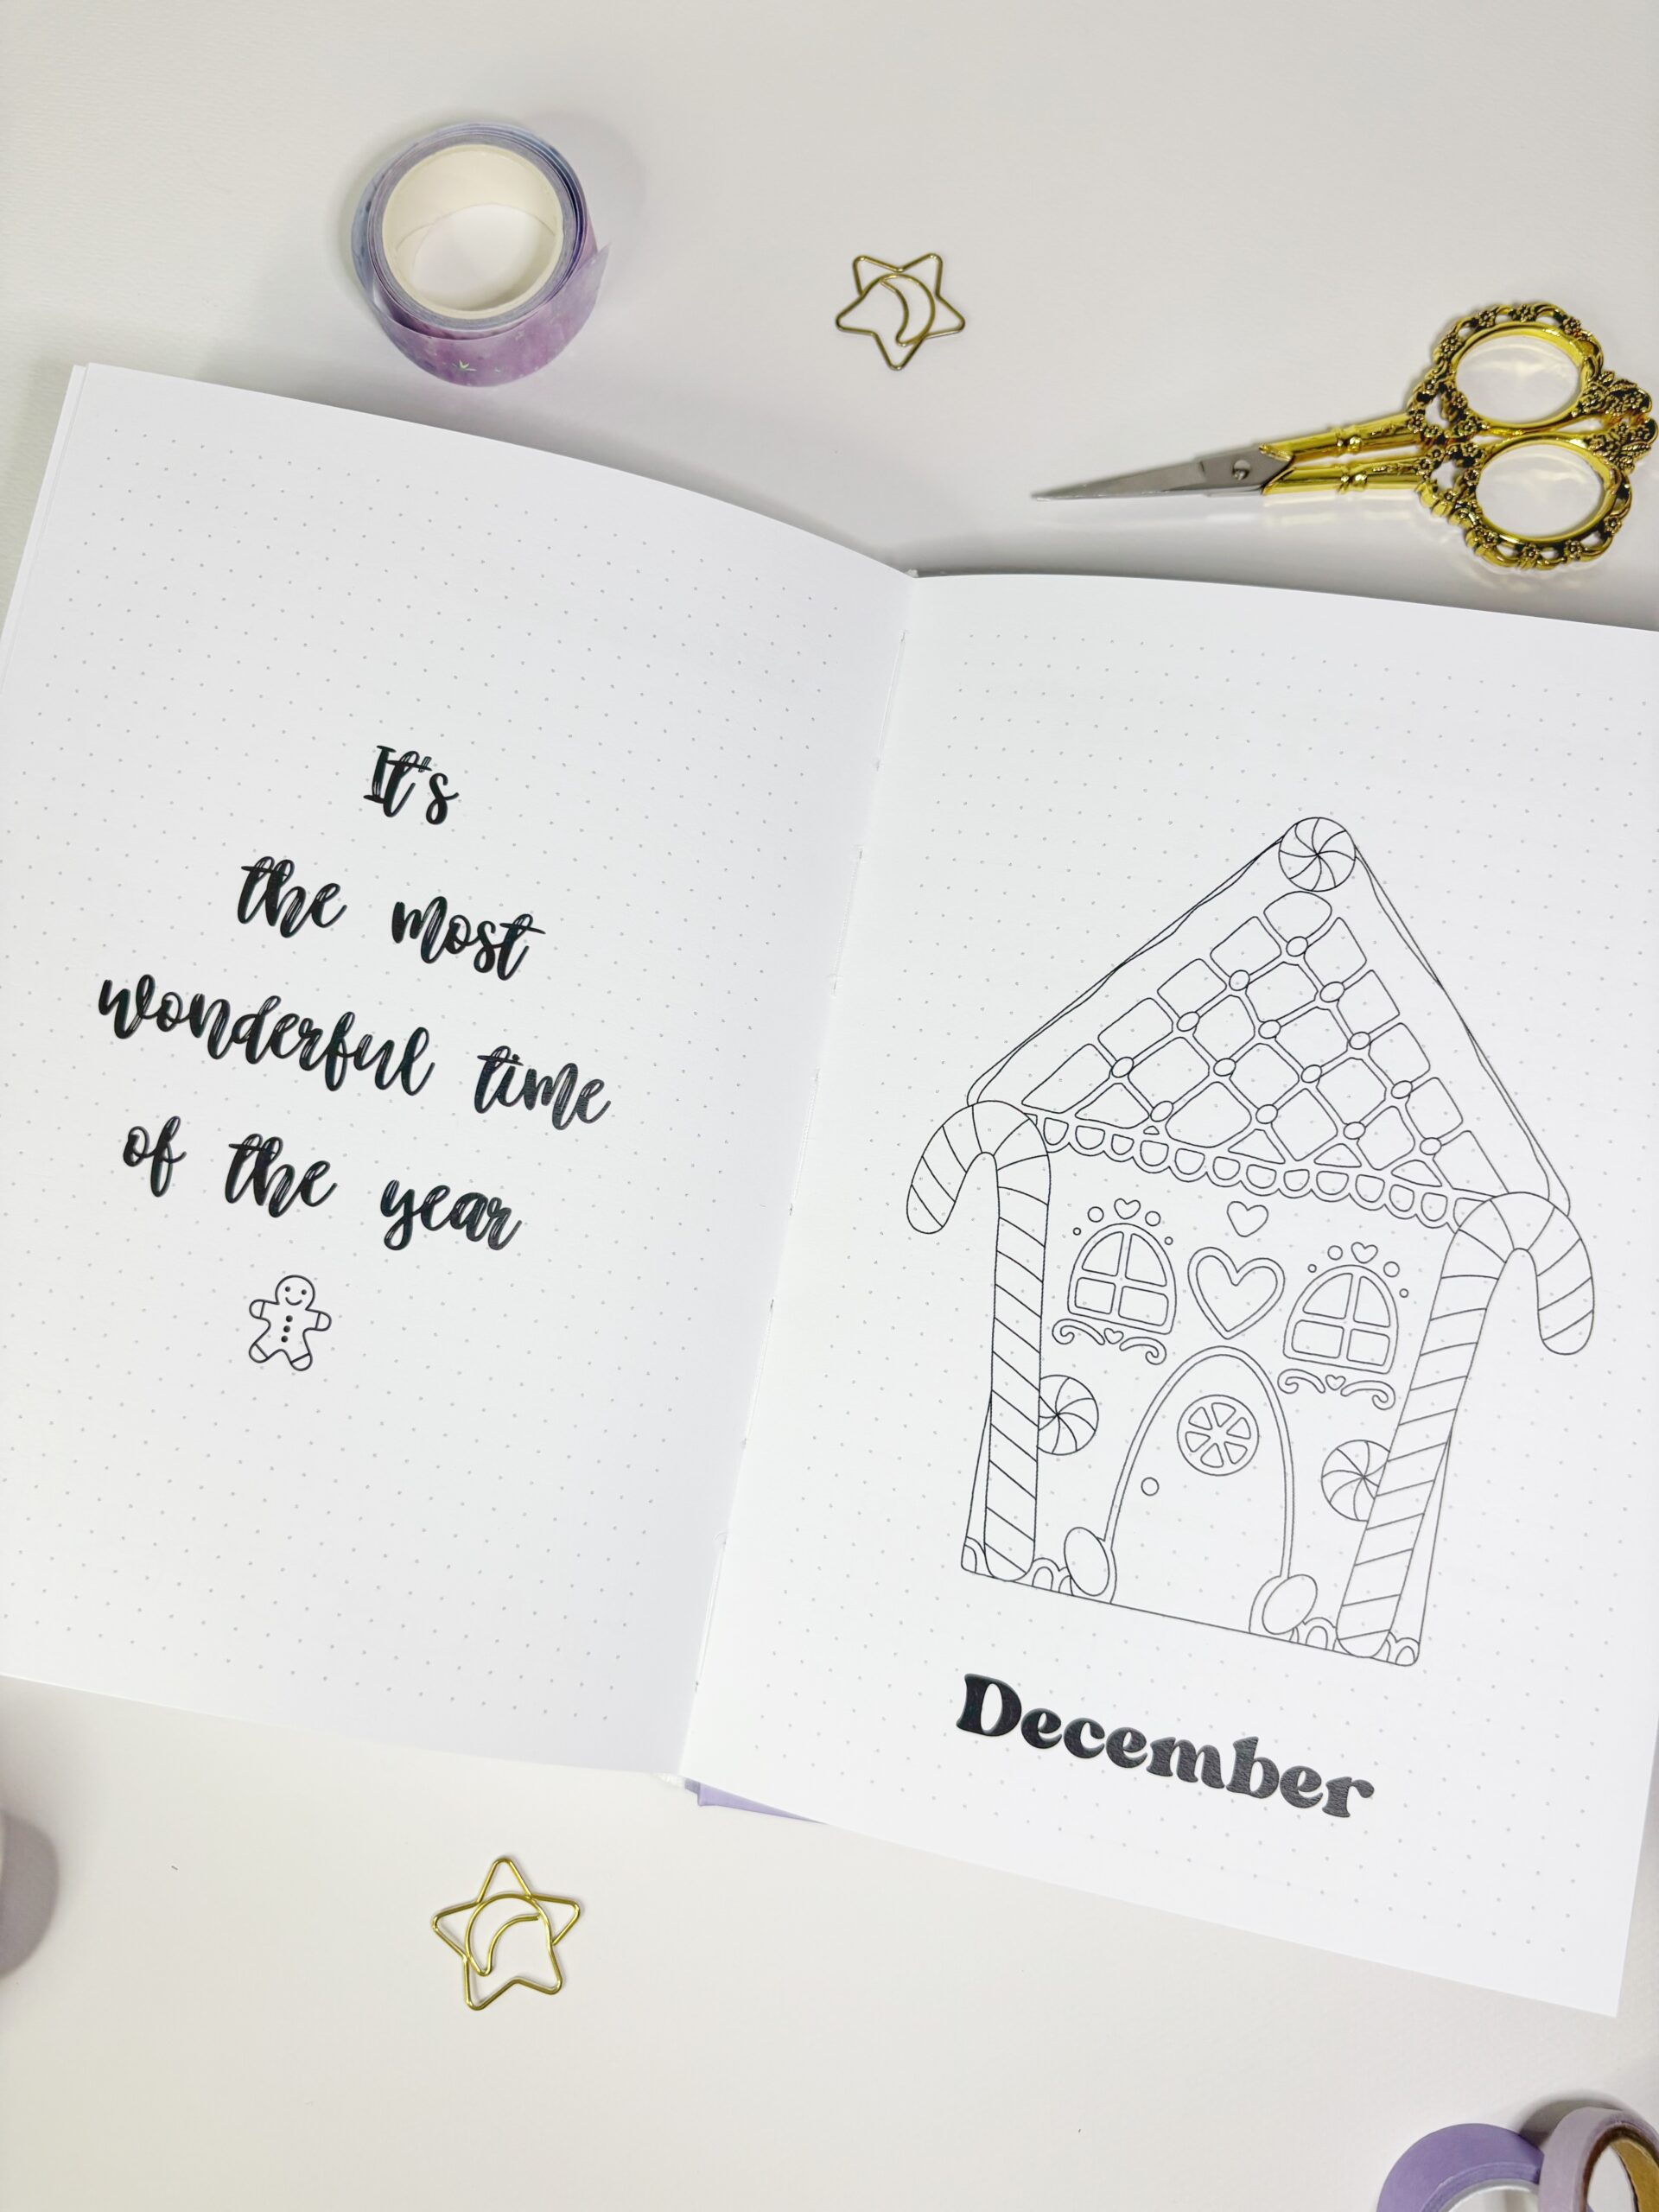 It's
the most
wonderful time
of the year
December